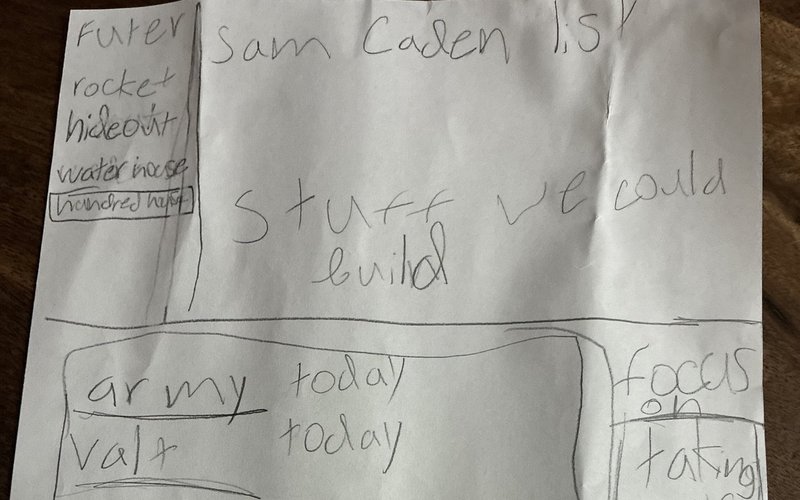 Futer
rocket
hideout
water house
hundred
Sam Caden list
stuff we could
build
army today
valt today
focus
on
taking